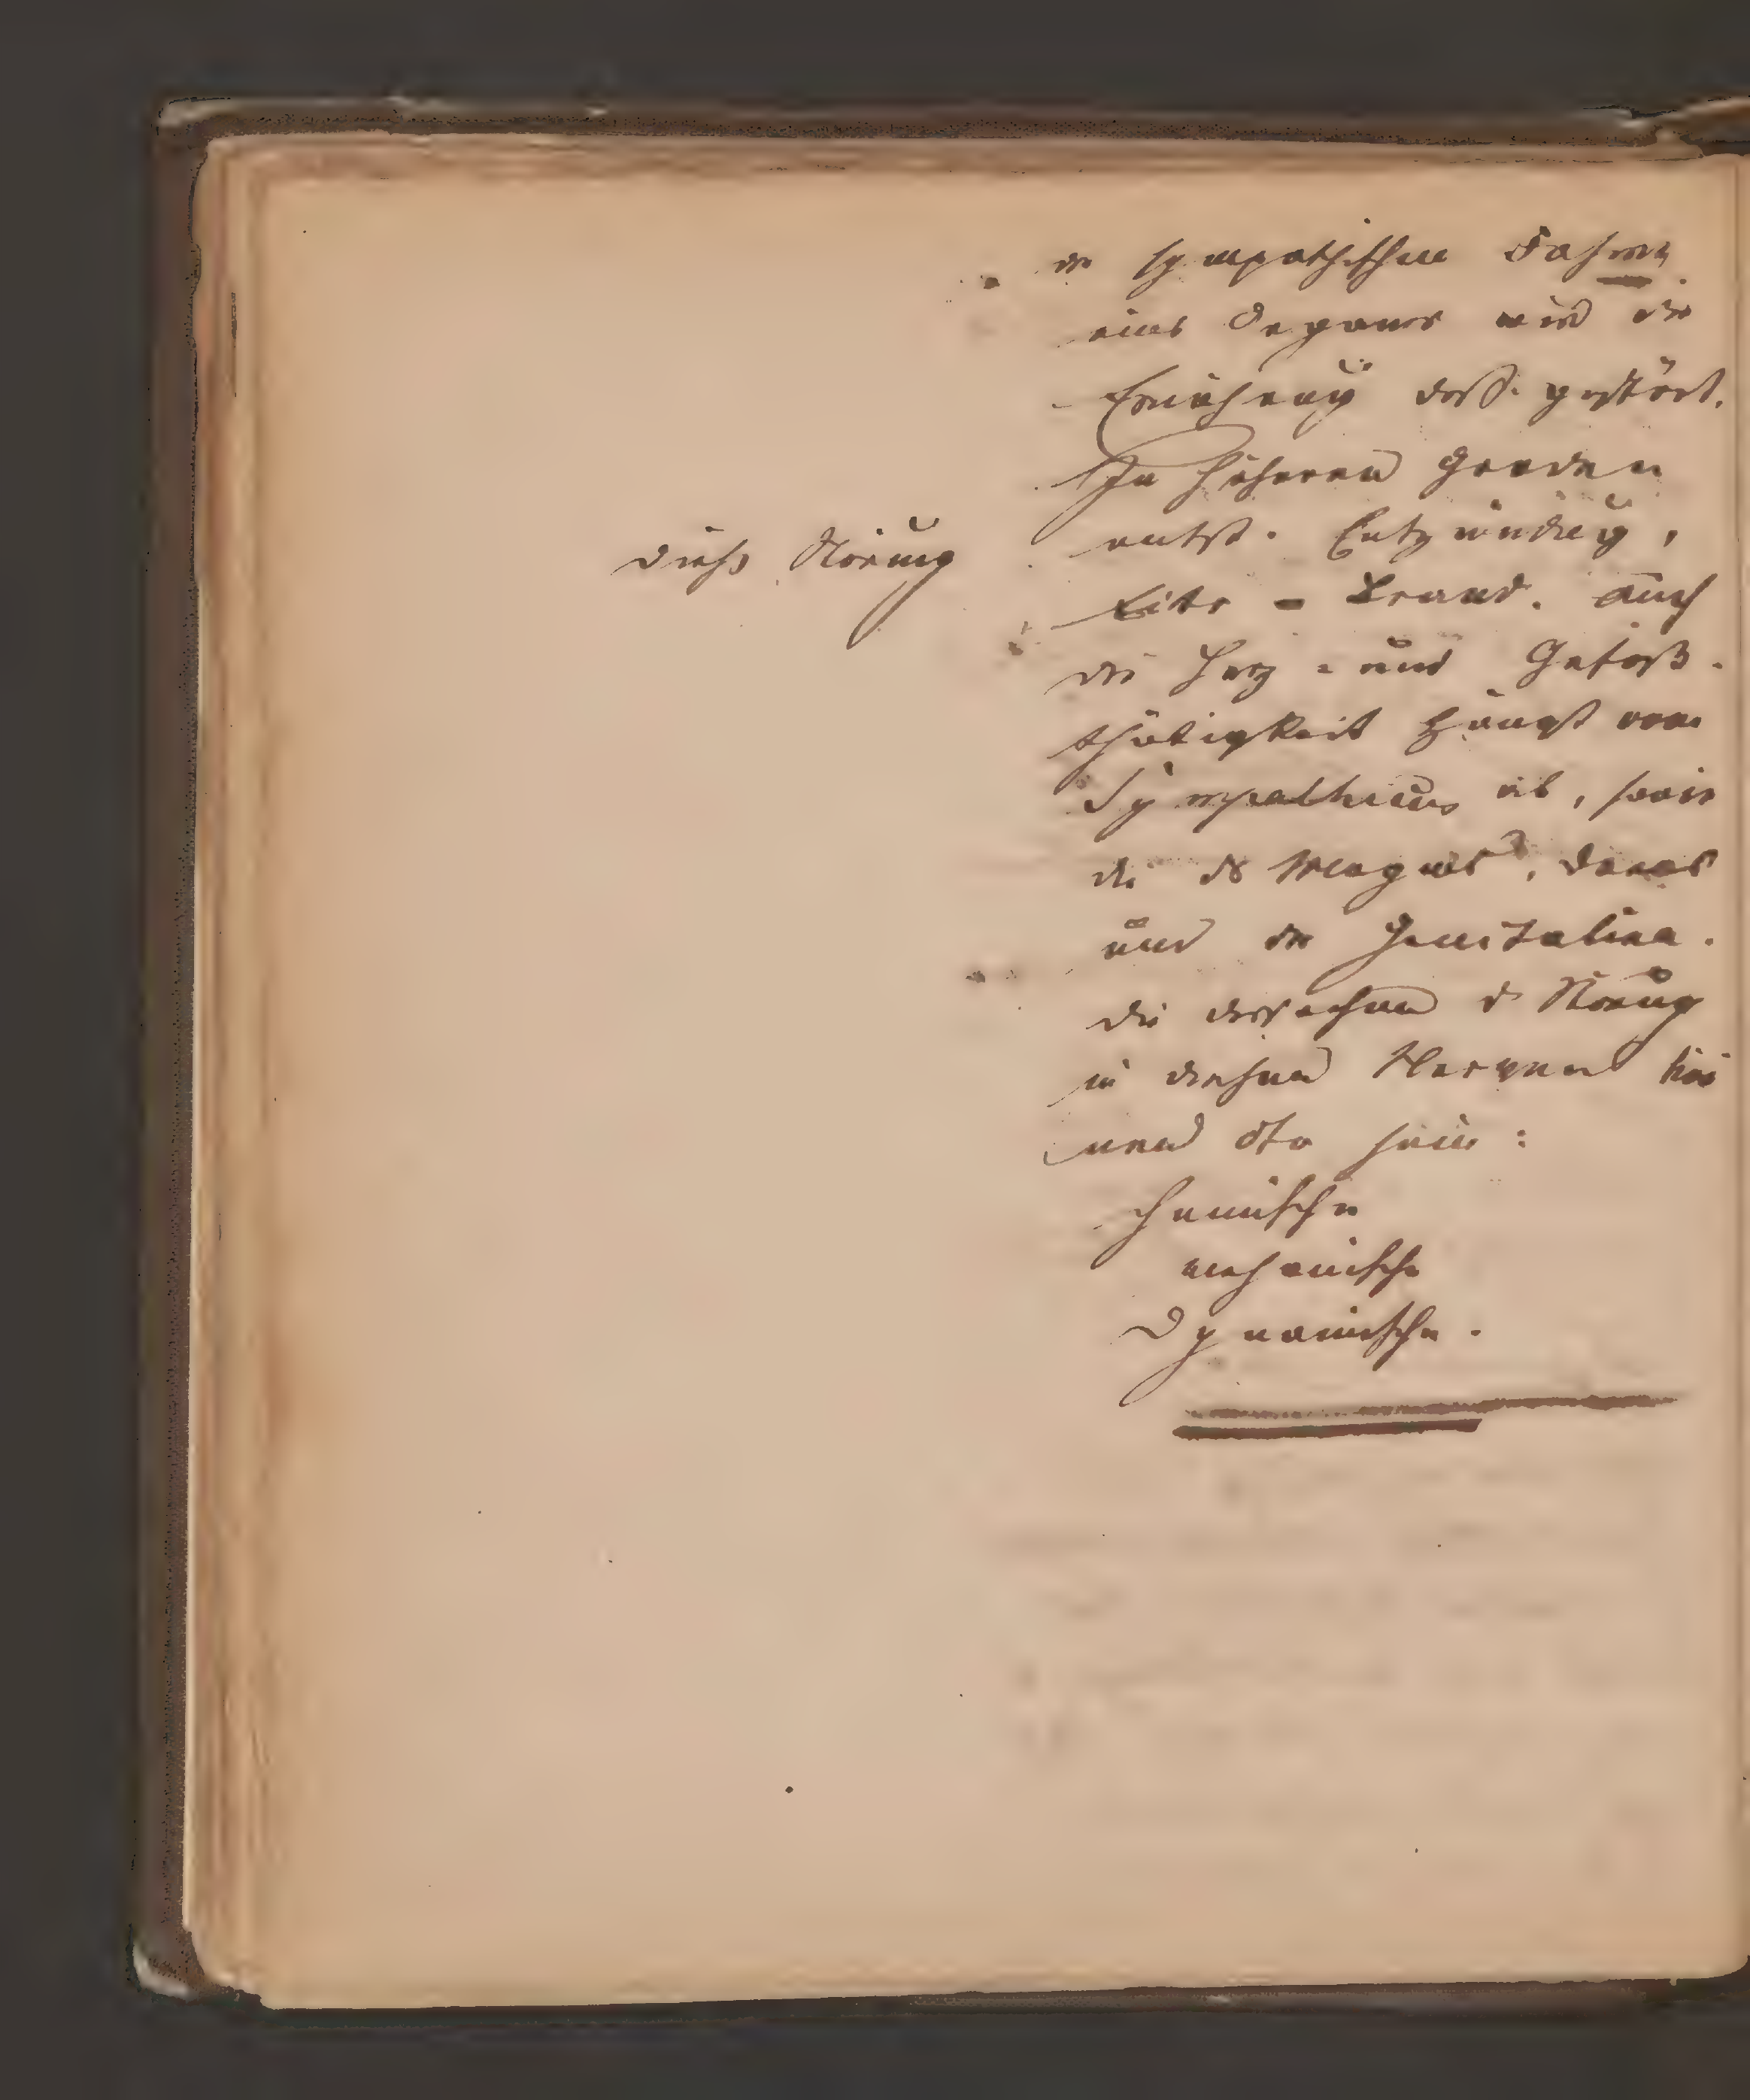 der sympathischen Fasern
eines Organes wird die
Ernährung dess. gestört.
In höheren Graden
entst. Entzündung,
dieser Störung
Eiter = Brand. Auch
die Herz = und Gefäß-
thätigkeit hängt vom
Sympathicus ab, sowie
die des Magens, Darmes
und der Genitalien.
die Ursachen d Störung
in diesen Nerven kön
nen sein:
chemische
mechanische
dynamische.